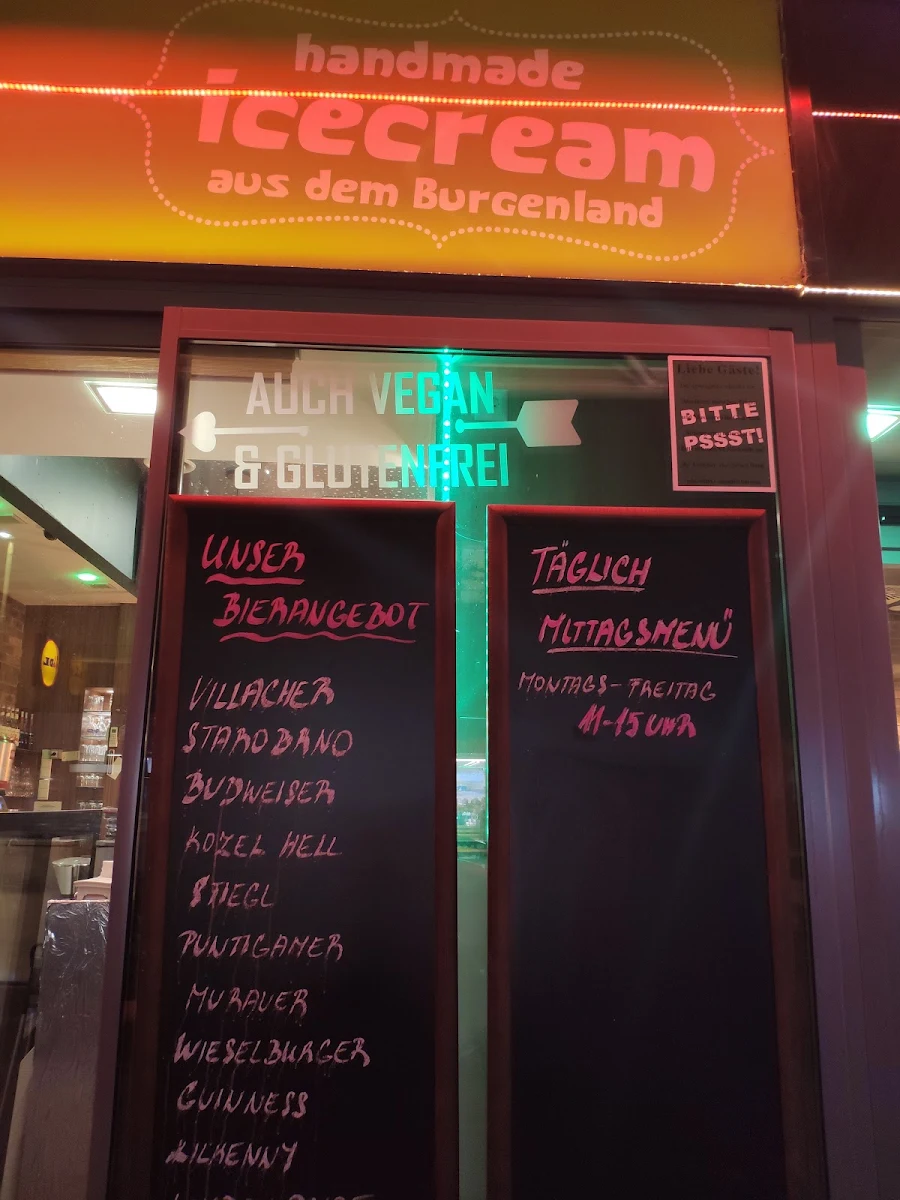 handmade
icecream
aus dem Burgenland
AUCH VEGAN
& GLUTENFREI
Liebe Gäste!
BITTE
PSSST!
UNSER
BIERANGEBOT
VILLACHER
STAROBRNO
BUDWEISER
KOZEL HELL
STIEGL
PUNTIGAMER
MURAUER
WIESELBURGER
GUINNESS
KILKENNY
TÄGLICH
MITTAGSMENÜ
MONTAGS-FREITAG
11-15 UHR